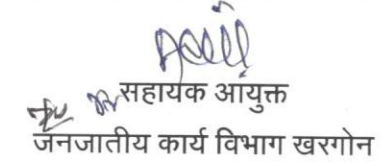 सहायक आयुक्त
जनजातीय कार्य विभाग खरगोन